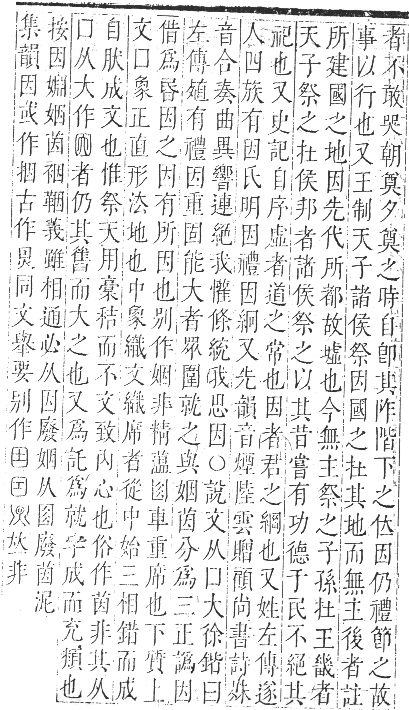 者不敢哭朝奠夕奠之時自卽其阼階下之位因仍禮節之故
事以行也又王制天子諸侯祭因國之在其地而無主後者註
所建國之地因先代所都故墟也今無主祭之子孫在王畿者
天子祭之在侯邦者諸侯祭之以其昔嘗有功德于民不絕其
祀也又史記自序虛者道之常也因者君之綱也又姓左傳遂
人四族有因氏明因禮因綱又先韻音煙陸雲贈顧尚書詩殊
音合奏曲異響連絕我懽條統我思因〇說文从囗大徐鍇曰
左傳植有禮因重固能大者眾圍就之與姻茵分爲三正譌因
借爲昏因之因有所因也别作姻非精薀囡車重席也下質上
文囗象正直形法地也中象織文織席者從中始三相錯而成
自肰成文也惟祭天用稾秸而不文致內心也俗作茵非其从
囗从大作者仍其舊而大之也又爲託爲就字成而充類也
按因婣姻茵裀鞇義雖相通必从因廢姻从囡廢茵泥
集韻因或作捆古作㫐同文舉要别作非